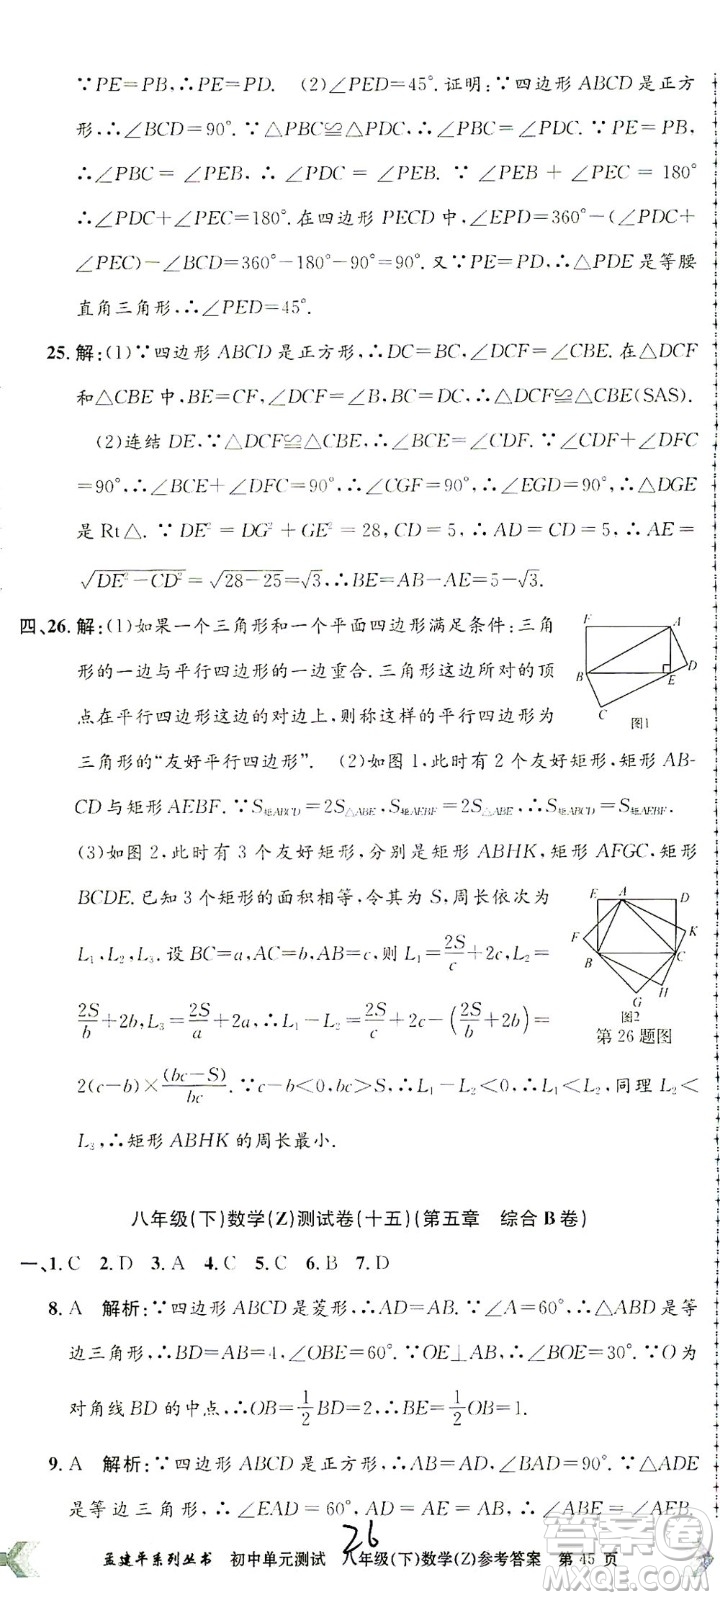 ∵PE=PB,∴PE=PD. (2)∠PED=45°.证明:∵四边形ABCD是正方
形,∴∠BCD=90°.∵△PBC≌△PDC,∴∠PBC=∠PDC.∵PE=PB,
∴∠PBC=∠PEB,∴∠PDC=∠PEB.∵∠PEB+∠PEC=180°
∴∠PDC+∠PEC=180°.在四边形PECD中,∠EPD=360°-(∠PDC+
∠PEC)-∠BCD=360°-180°-90°=90°.又∵PE=PD,∴△PDE是等腰
直角三角形,∴∠PED=45°.
25.解:(1)∵四边形ABCD是正方形,∴DC=BC,∠DCF=∠CBE.在△DCF
和△CBE中,BE=CF,∠DCF=∠CBE,DC=BC,∴△DCF≌△CBE(SAS).
(2)连结DE,∵△DCF≌△CBE,∴∠BCE=∠CDF.∵∠CDF+∠DFC
=90°,∴∠BCE+∠DFC=90°,∴∠CGF=90°,∴∠EGD=90°,∴△DGE
是Rt△.∵DE²=DG²+GE²=28,CD=5,∴AD=CD=5,∴AE=
√(DE²-CD²)=√(28-25)=√3,∴BE=AB-AE=5-√3.
四、26.解:(1)如果一个三角形和一个平面四边形满足条件:三角
形的一边与平行四边形的一边重合.三角形这边所对的顶
点在平行四边形这边的对边上,则称这样的平行四边形为
三角形的“友好平行四边形”. (2)如图1,此时有2个友好矩形,矩形AB-
F A B E D C
图1
CD与矩形AEBF.∵S矩ABCD=2S△ABE,S矩AEBF=2S△ABE,∴相等.
(3)如图2,此时有3个友好矩形,分别是矩形ABHK,矩形AFGC,矩形
BCDE.已知3个矩形的面积相等,令其为S,周长依次为
L₁,L₂,L₃.设BC=a,AC=b,AB=c,则L₁=2S/c+2c,L₂=
2S/b+2b,L₃=2S/a+2a,∴L₁-L₂=2S/c+2c-(2S/b+2b)=
E A D F K B C H G
图2
第26题图
2(c-b)×(bc-S)/bc.∵c-b<0,bc>S,∴L₁-L₂<0,∴L₁<L₂,同理L₂<
L₃,∴矩形ABHK的周长最小.
八年级(下)数学(Z)测试卷(十五)(第五章 综合B卷)
一、1.C 2.D 3.A 4.C 5.C 6.D 7.D
8.A 解析:∵四边形ABCD是菱形,∴AD=AB.∵∠A=60°,∴△ABD是等
边三角形,∴BD=AB=4,∠OBE=60°.∵OE⊥AB,∴∠BOE=30°.∵O为
对角线BD的中点,∴OB=1/2BD=2,∴BE=1/2OB=1.
9.A 解析:∵四边形ABCD是正方形,∴AB=AD,∠BAD=90°.∵△ADE
是等边三角形,∴∠EAD=60°,AD=AE,∴AB=AE,∴∠ABE=∠AEB.
26
孟建平系列丛书 初中单元测试 八年级(下)数学(Z)参考答案 第45页